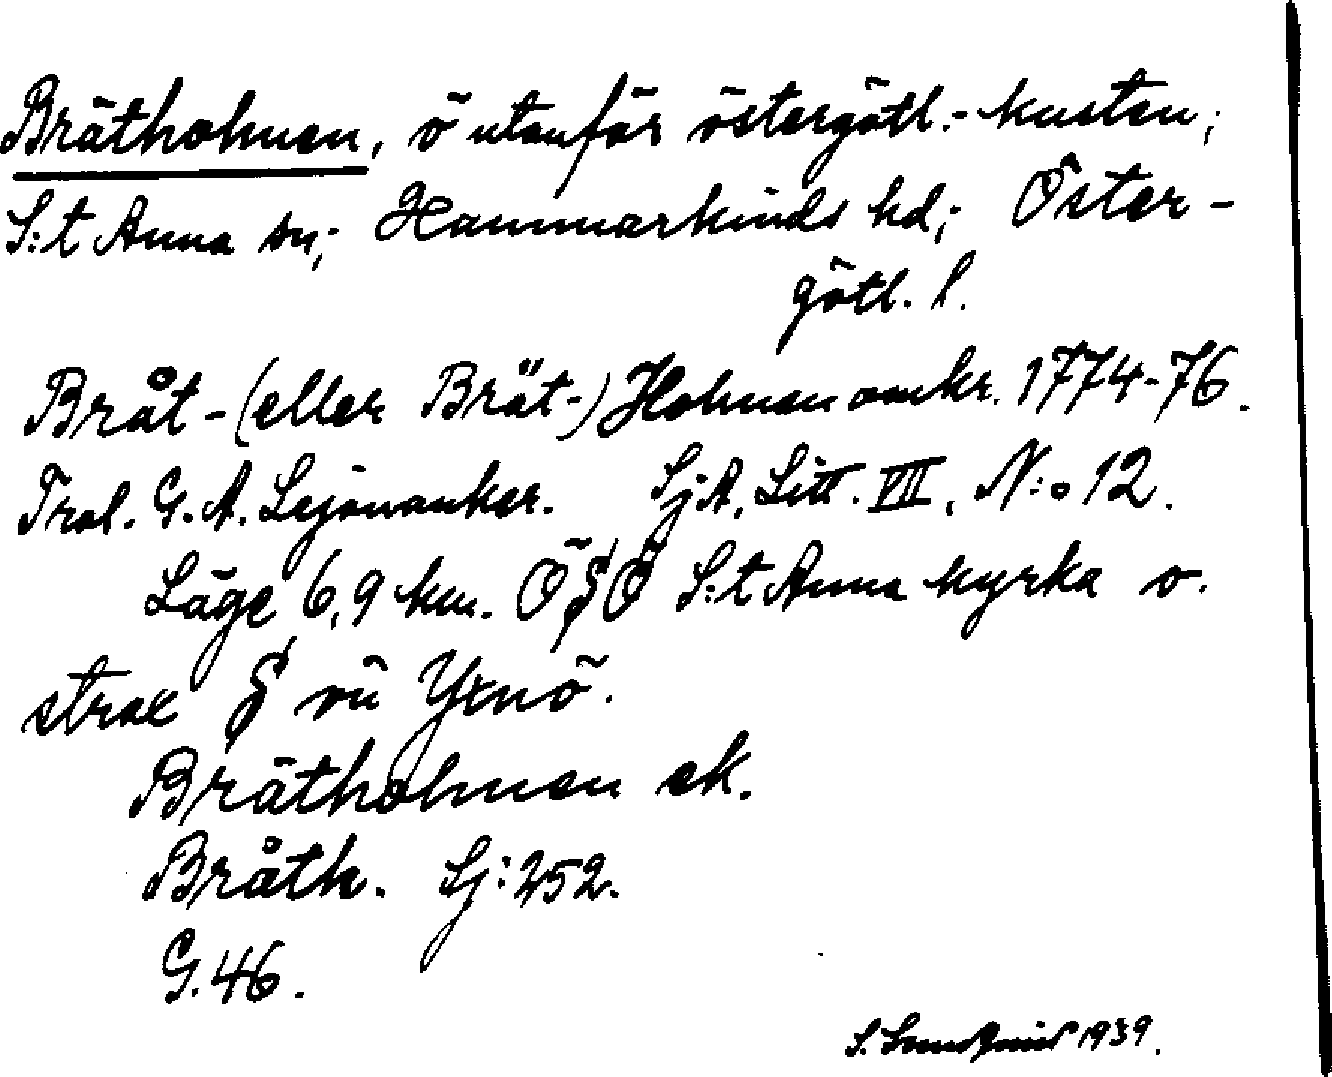 Brätholmen, ö utanför östergötl.-kusten;
S:t Anna sn; Hammarkinds hd; Öster-
götl. l.
Bråt-(eller Brät-)Holmen omkr. 1774-76.
Trol. G. A. Lejonanker. Sj.A. Litt. VII, N:o 12.
Läge 6,9 km. ÖSÖ S:t Anna kyrka o.
strax S om Yxnö.
Brätholmen ek.
Bråth. Sj: 252.
G. 46.
S. 1939.